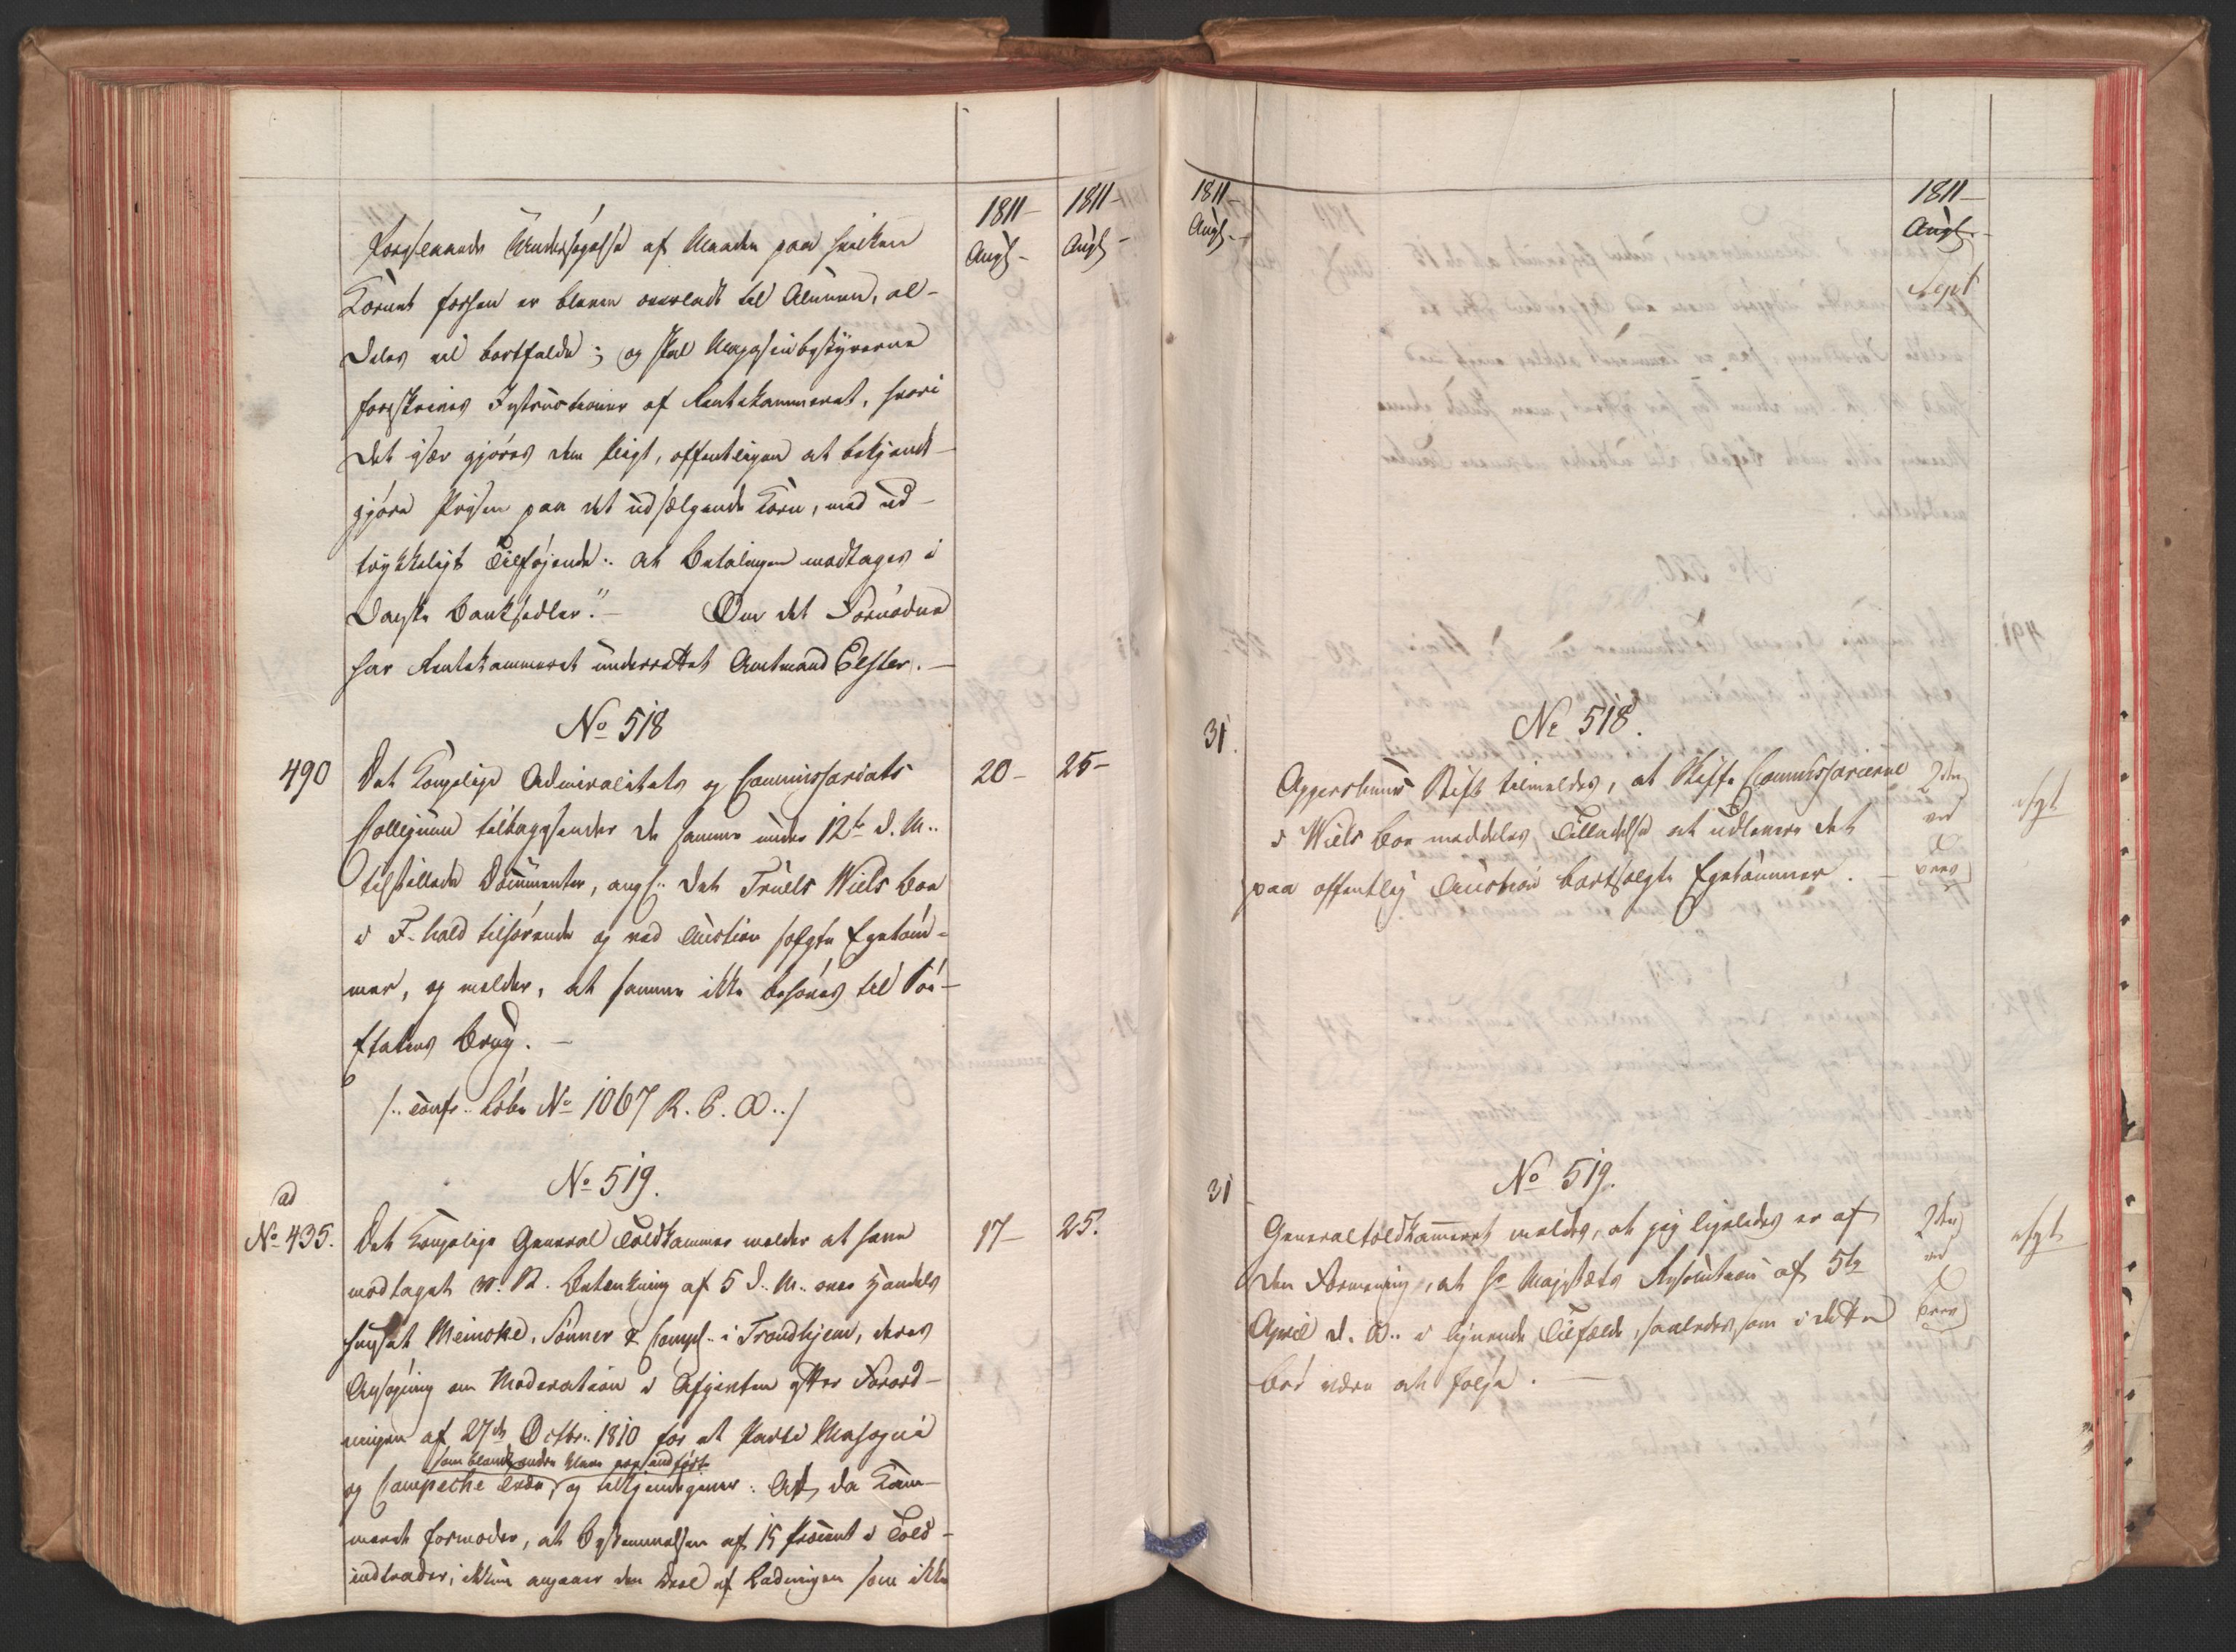 1811 – 1811 –
Augs – Augs –
Undersøgelse af Maaden paa hvilken
Kornet forhen er bleven overladt til Almuen, al-
deles vil bortfalde; og skal Magasinbestyrerne
foreskrives Instructioner af Rentekammeret, hvori
det især gjøres dem Pligt, offentligen at bekjendt-
gjøre Prisen paa det udsælgende Korn, med ud-
trykkeligt Tilføjende: at Betalingen modtages i
Danske Banksedler." – Om det Fornødne
har Rentekammeret underrettet Amtmand Elster. –
No 518
490 Det Kongelige Admiralitets og Commissariats 20 – 25 –
Collegium tilbagesender de samme under 12te d. M..
tilstillede Documenter, angs.. det Truels Wiels Boe
i F-hald tilhørende og ved Auction solgte Egetøm-
mer, og melder, at samme ikke behøves til Søe-
Etatens Brug. –
/.. confr.. Løbe No 1067 R. P. O../
No 519.
ad
No 435. Det Kongelige General Toldkammer melder at have 17 – 25.
modtaget m. R. Betænkning af 5 d.. M.. over Handels
huset Meincke, Sønner & Comp.. i Trondhjem, deres
Ansøgning om Moderation i Afgivten efter Forord-
ningen af 27de Octbr.. 1810 for et Partie
som blandt andre Vare
og Campeche Træe, og tilkjendegiver: At, da Kam-
meret formoder, at Bestemmelsen af 15 Procent i Told
indtræder, angaaer den Deel af Ladningen som ikke
1811 – 1811 –
Augs. – Augs –
Sept
No 518.
31.
Aggershuus Stift tilmeldes, at Skifte Commissarierne
i Wiels Boe meddeles Tilladelse at udlevere det
paa offentlig Auction bortsolgte Egetømmer. –
2den
No 519.
31
Generaltoldkammeret meldes, at jeg ligeledes er af
den Formening, at Hs Majestæts Resolution af 5te
April d. A.. i lignende Tilfælde, saaledes som i dette
bør være at følge. –
2den